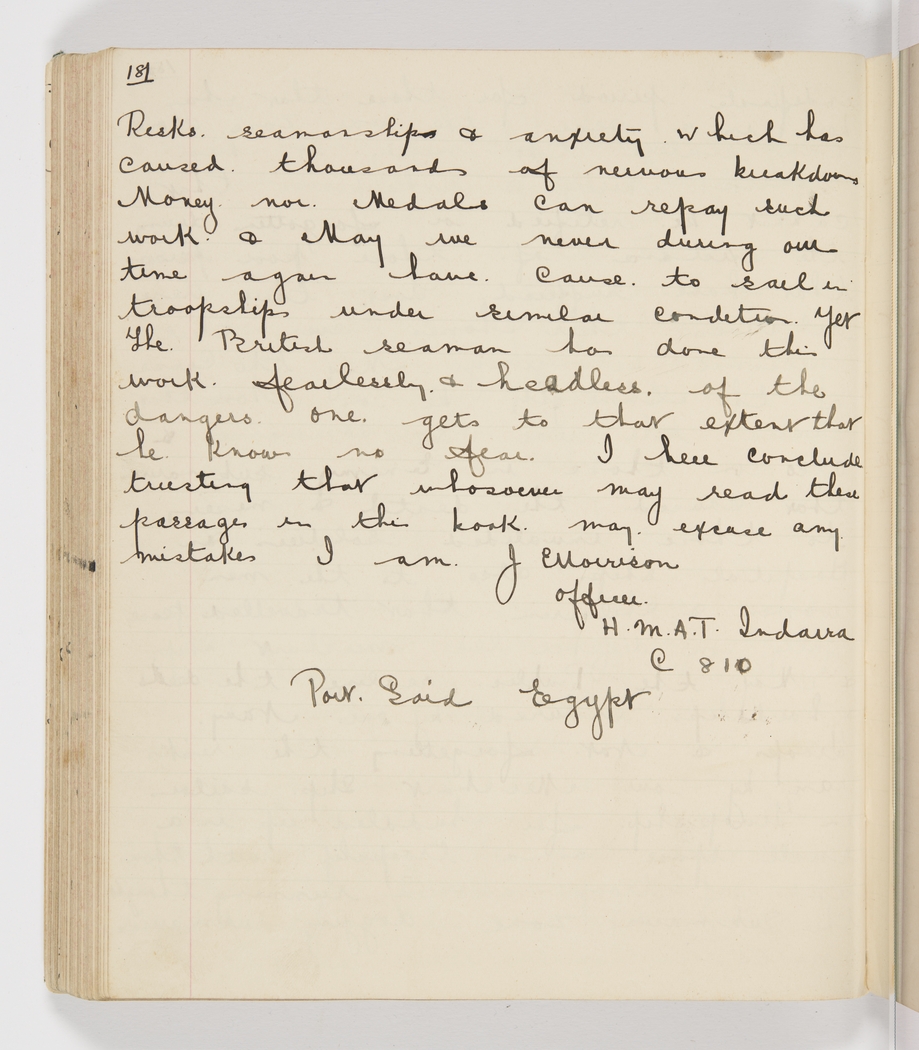 181
Risks. seamanships & anxiety. which has
caused. thousands of nervous breakdowns
Money. nor. Medals can repay such
work. & May we never during our
time again have. cause. to sail in
troopships under similar condition. Yet
the. British seaman has done this
work. fearlessly. & headless. of the
dangers. one. gets to that extent that
he knows no fear. I here conclude
trusting that whosoever may read these
passages in this book. may. excuse any
mistakes I am. J E Morrison
officer.
H.M.A.T. Indarra
C 810
Port. Said Egypt